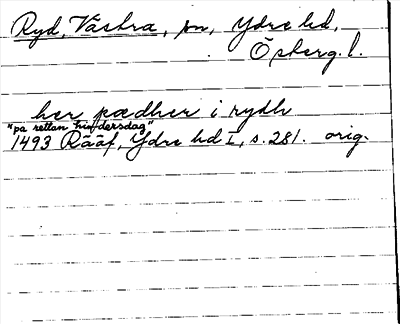 Ryd, Västra, sn, Ydre hd,
Östberg. l.
her pædher i rydh
"pa rettan tingdersdag"
1493 Rääf, Ydre hd I, s. 281. orig.